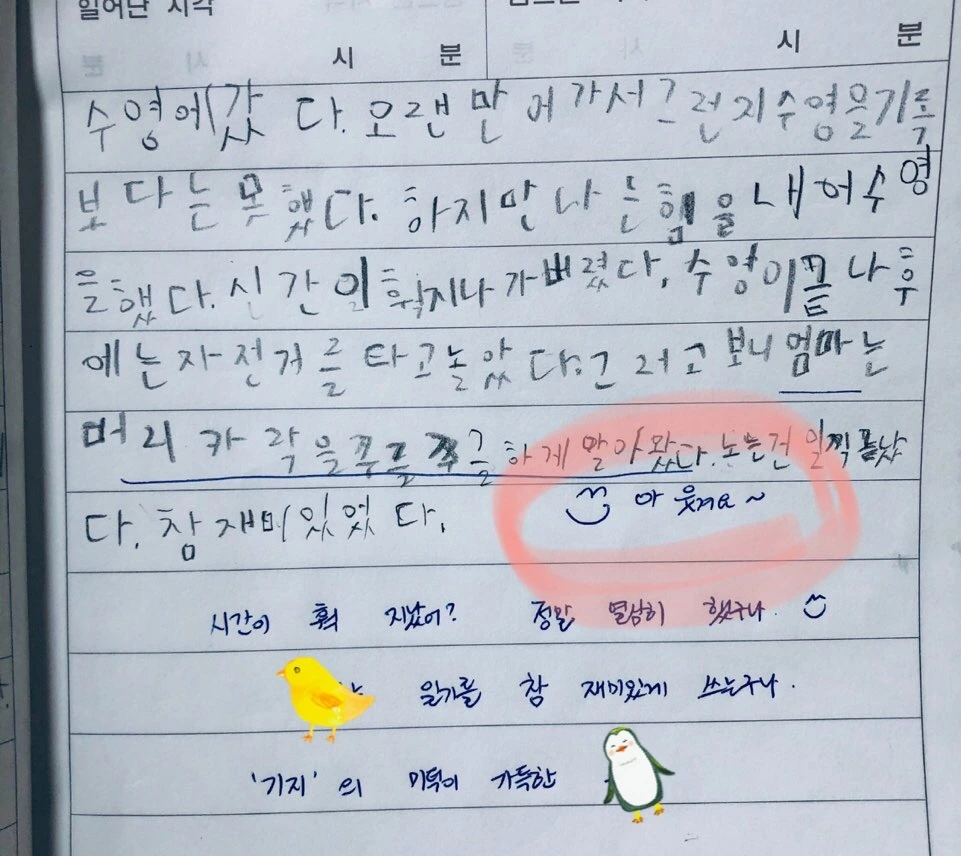 일어난 시각
시 분 시 분
수영에 갔다. 오랜만에 가서 그런지 수영을 기록
보다는 못했다. 하지만 나는 힘을 내어 수영
을 했다. 신간이 훡지나가버렸다. 수영이 끝나 후
에는 자전거를 타고 놀았다. 그러고 보니 엄마는
머리카락을 쭈글쭈글하게 말아왔다. 노는건 일찍 끝났
다. 참 재미있었다.
아 웃겨요~
시간이 훡 지났어? 정말 열심히 했구나.
일기를 참 재미있게 쓰는구나.
'기지'의 미덕이 가득한